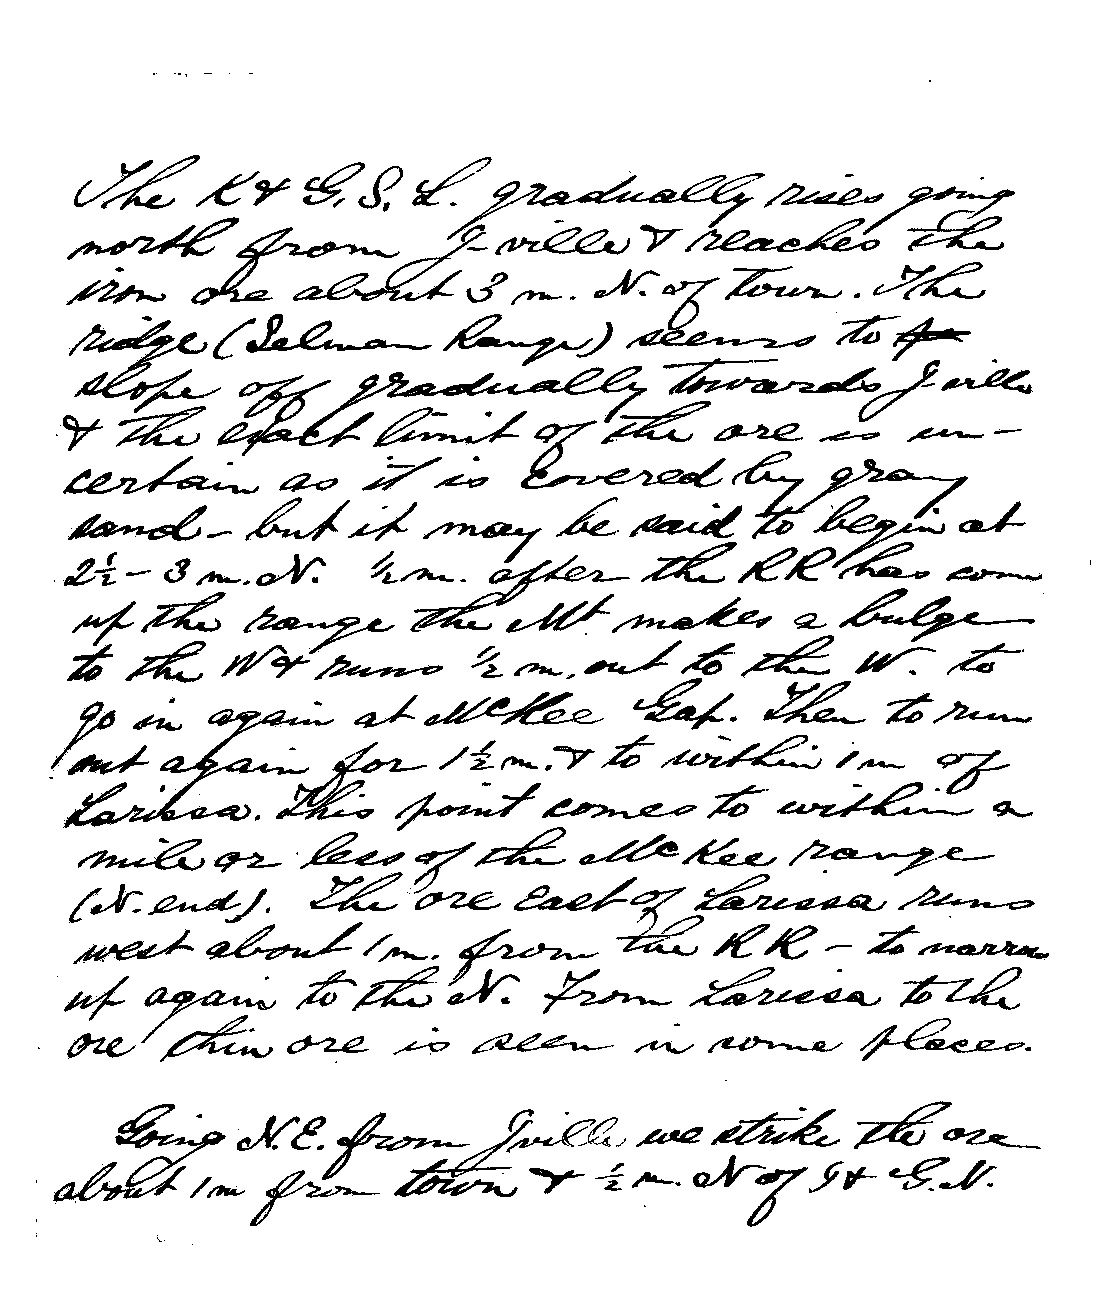 The K & G. S. L. gradually rises going
north from J-ville & reaches the
iron ore about 3 m. N. of town. The
ridge (Selman Range) seems to
slope off gradually towards Jville
& the exact limit of the ore is un-
certain as it is covered by gray
sand - but it may be said to begin at
2½ - 3 m. N. ½ m. after the RR has come
up the range the Mt makes a bulge
to the W & runs ½ m. out to the W. to
go in again at McKee Gap. Then to run
out again for 1½ m. & to within 1 m of
Larissa. This point comes to within a
mile or less of the McKee range
(N. end). The ore East of Larissa runs
west about 1 m. from the RR - to narrow
up again to the N. From Larissa to the
ore thin ore is seen in some places.
Going N.E. from Jville we strike the ore
about 1 m from town & ½ m. N of I & G.N.